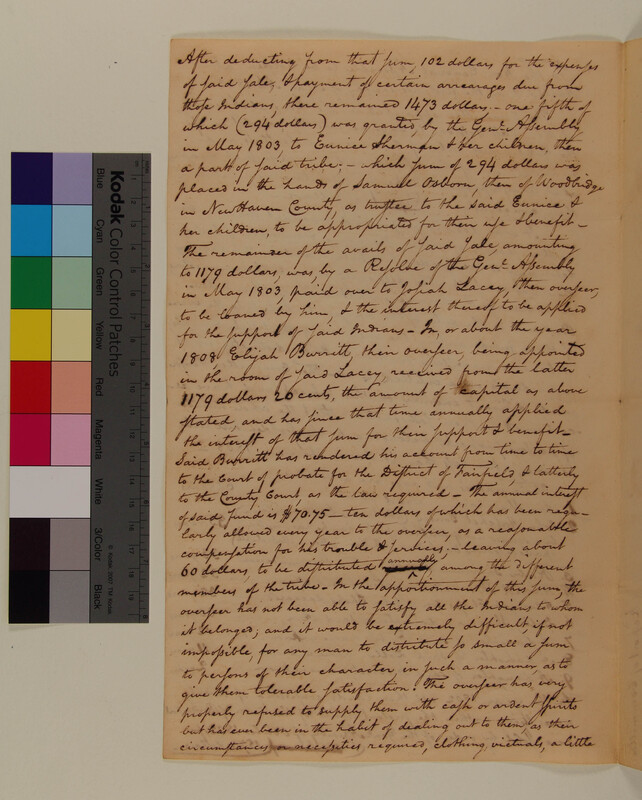 After deducting from that sum, 102 dollars for the expenses
of said sale, & payment of certain arrearages due from
those Indians, there remained 1473 dollars. - one fifth of
which (294 dollars) was granted, by the Genl. Assembly,
in May 1803, to Eunice Sherman & her children, then
a part of said tribe; - which sum of 294 dollars was
placed in the hands of Samuel Osborn, then of Woodbridge
in New Haven County, as trustee to the said Eunice &
her children, to be appropriated for their use & benefit -
The remainder of the avails of said sale, amounting
to 1179 dollars, was by a Resolve of the Genl. Assembly
in May 1803, paid over to Josiah Lacey, then overseer,
to be loaned by him, & the interest thereof to be applied
for the support of said Indians - In, or about the year
1808 Elijah Burritt, their overseer, being appointed
in the room of said Lacey, received from the latter
1179 dollars 20 cents, the amount of capital as above
stated, and has since that time annually applied
the interest of that sum for their support & benefit -
Said Burritt has rendered his account from time to time
to the Court of probate for the District of Fairfield, & latterly
to the County Court, as the law required - The annual interest
of said fund is $70.75 - ten dollars of which has been regu-
larly allowed every year to the overseer, as a reasonable
compensation for his trouble & services, - leaving about
60 dollars, to be distributed annually among the different
members of the tribe - In the apportionment of this sum, the
overseer has not been able to satisfy all the Indians to whom
it belonged, and it would be extremely difficult, if not
impossible, for any man to distribute so small a sum
to persons of their character, in such a manner, as to
give them tolerable satisfaction. The overseer has very
properly refused to supply them with cash or ardent spirits
but has ever been in the habit of dealing out to them as their
circumstances or necessities required, clothing, victuals, a little
Kodak Color Control Patches
Blue
Cyan
Green
Yellow
Red
Magenta
White
3/Color
Black